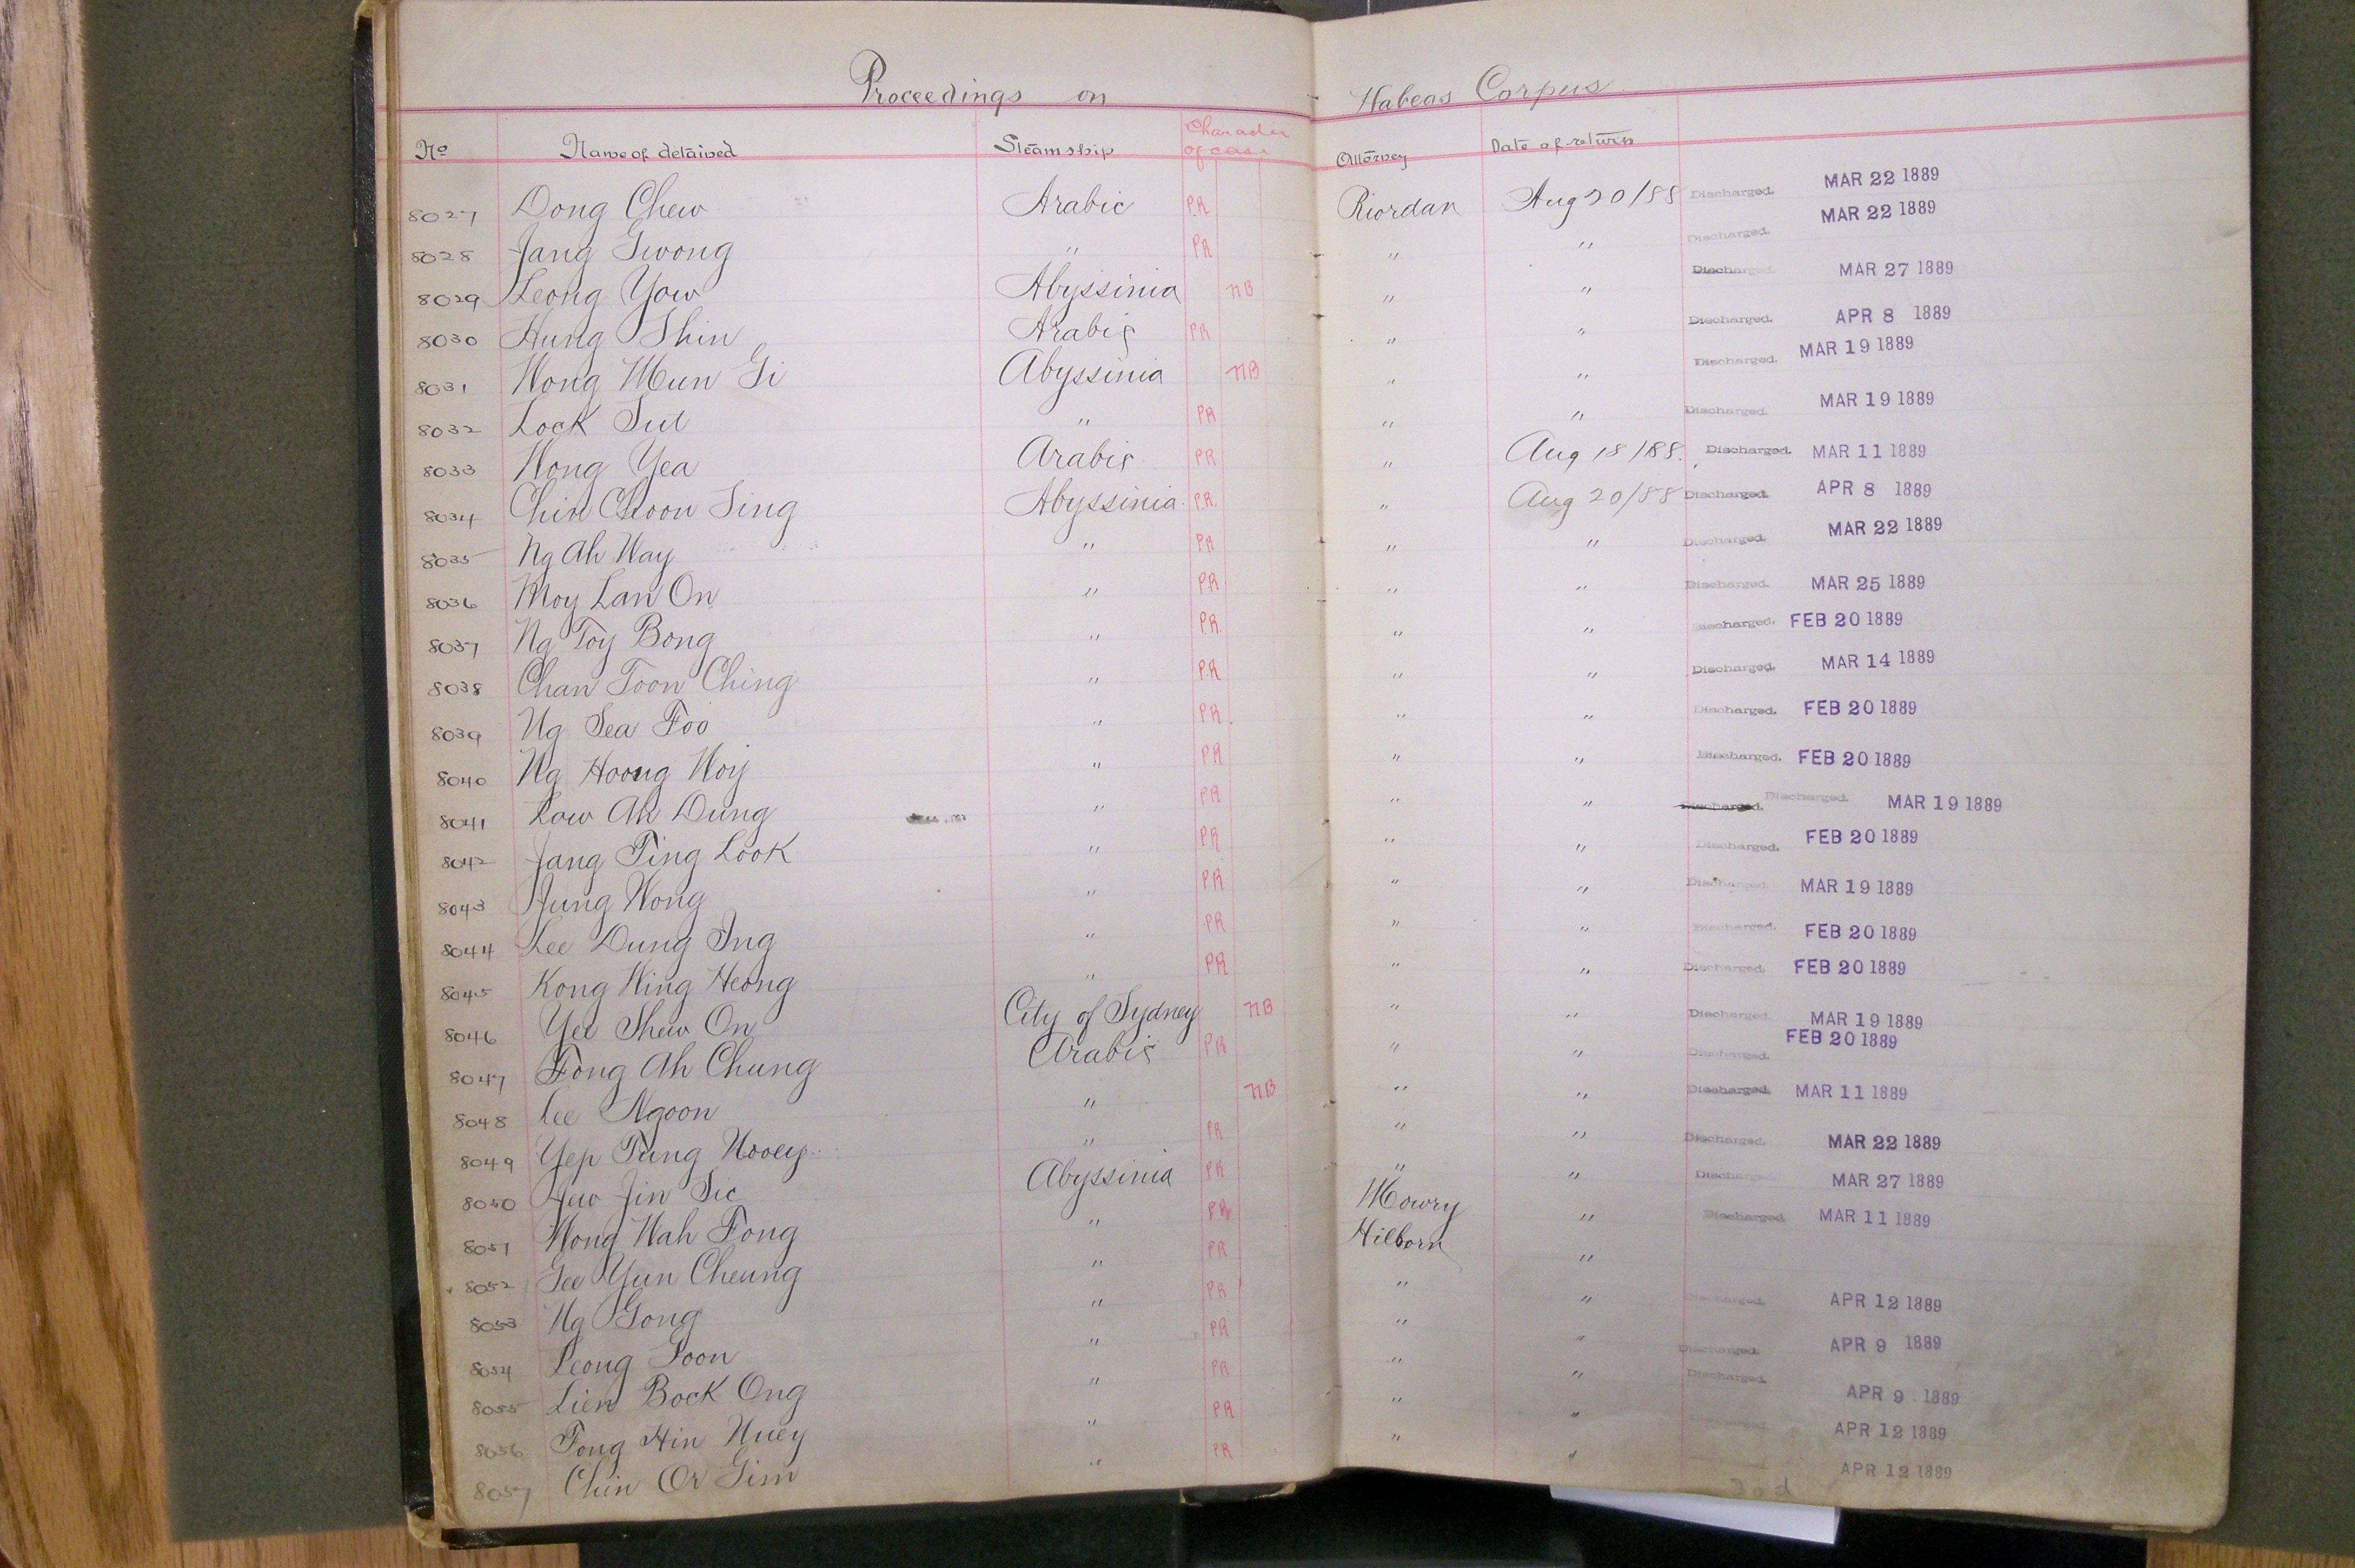 Proceedings on Habeas Corpus
No Name of detained Steamship Character of case Attorney Date of return
8027 Dong Chew Arabic PR Riordan Aug 20/88 Discharged. MAR 22 1889
8028 Jang Gwong " PR " " Discharged. MAR 22 1889
8029 Leong Yow Abyssinia NB " " Discharged. MAR 27 1889
8030 Hung Shin Arabic PR " " Discharged. APR 8 1889
8031 Wong Mun Gi Abyssinia NB " " Discharged. MAR 19 1889
8032 Lock Sut " PR " " Discharged. MAR 19 1889
8033 Wong Yea Arabic PR " Aug 18/88. Discharged. MAR 11 1889
8034 Chin Choon Sing Abyssinia PR " Aug 20/88 Discharged. APR 8 1889
8035 Ng Ah Way " PR " " Discharged. MAR 22 1889
8036 Moy Lan On " PR " " Discharged. MAR 25 1889
8037 Ng Toy Bong " PR " " Discharged. FEB 20 1889
8038 Chan Toon Ching " PR " " Discharged. MAR 14 1889
8039 Ng Sea Foo " PR " " Discharged. FEB 20 1889
8040 Ng Hoong Hoy " PR " " Discharged. FEB 20 1889
8041 Low Ah Dung " PR " " Discharged. Discharged. MAR 19 1889
8042 Jang Ping Look " PR " " Discharged. FEB 20 1889
8043 Jung Wong " PR " " Discharged. MAR 19 1889
8044 Lee Dung Ing " PR " " Discharged. FEB 20 1889
8045 Kong Wing Heong " PR " " Discharged. FEB 20 1889
8046 Yee Shew On City of Sydney NB " " Discharged. MAR 19 1889
8047 Fong Ah Chung Arabic PR " " Discharged. FEB 20 1889
8048 Lee Ngoon " NB " " Discharged. MAR 11 1889
8049 Yep Tung Hooey " PR " " Discharged. MAR 22 1889
8050 Jew Jin Sic Abyssinia PR " " Discharged. MAR 27 1889
8051 Wong Wah Fong " PR Mowry " Discharged. MAR 11 1889
8052 Gee Yun Cheung " PR Hilborn "
8053 Ng Gong " PR " " Discharged. APR 12 1889
8054 Leong Soon " PR " " Discharged. APR 9 1889
8055 Lien Bock Ong " PR " " Discharged. APR 9 1889
8056 Fong Hin Huey " PR " " Discharged. APR 12 1889
8057 Chin Or Gim " PR " " APR 12 1889